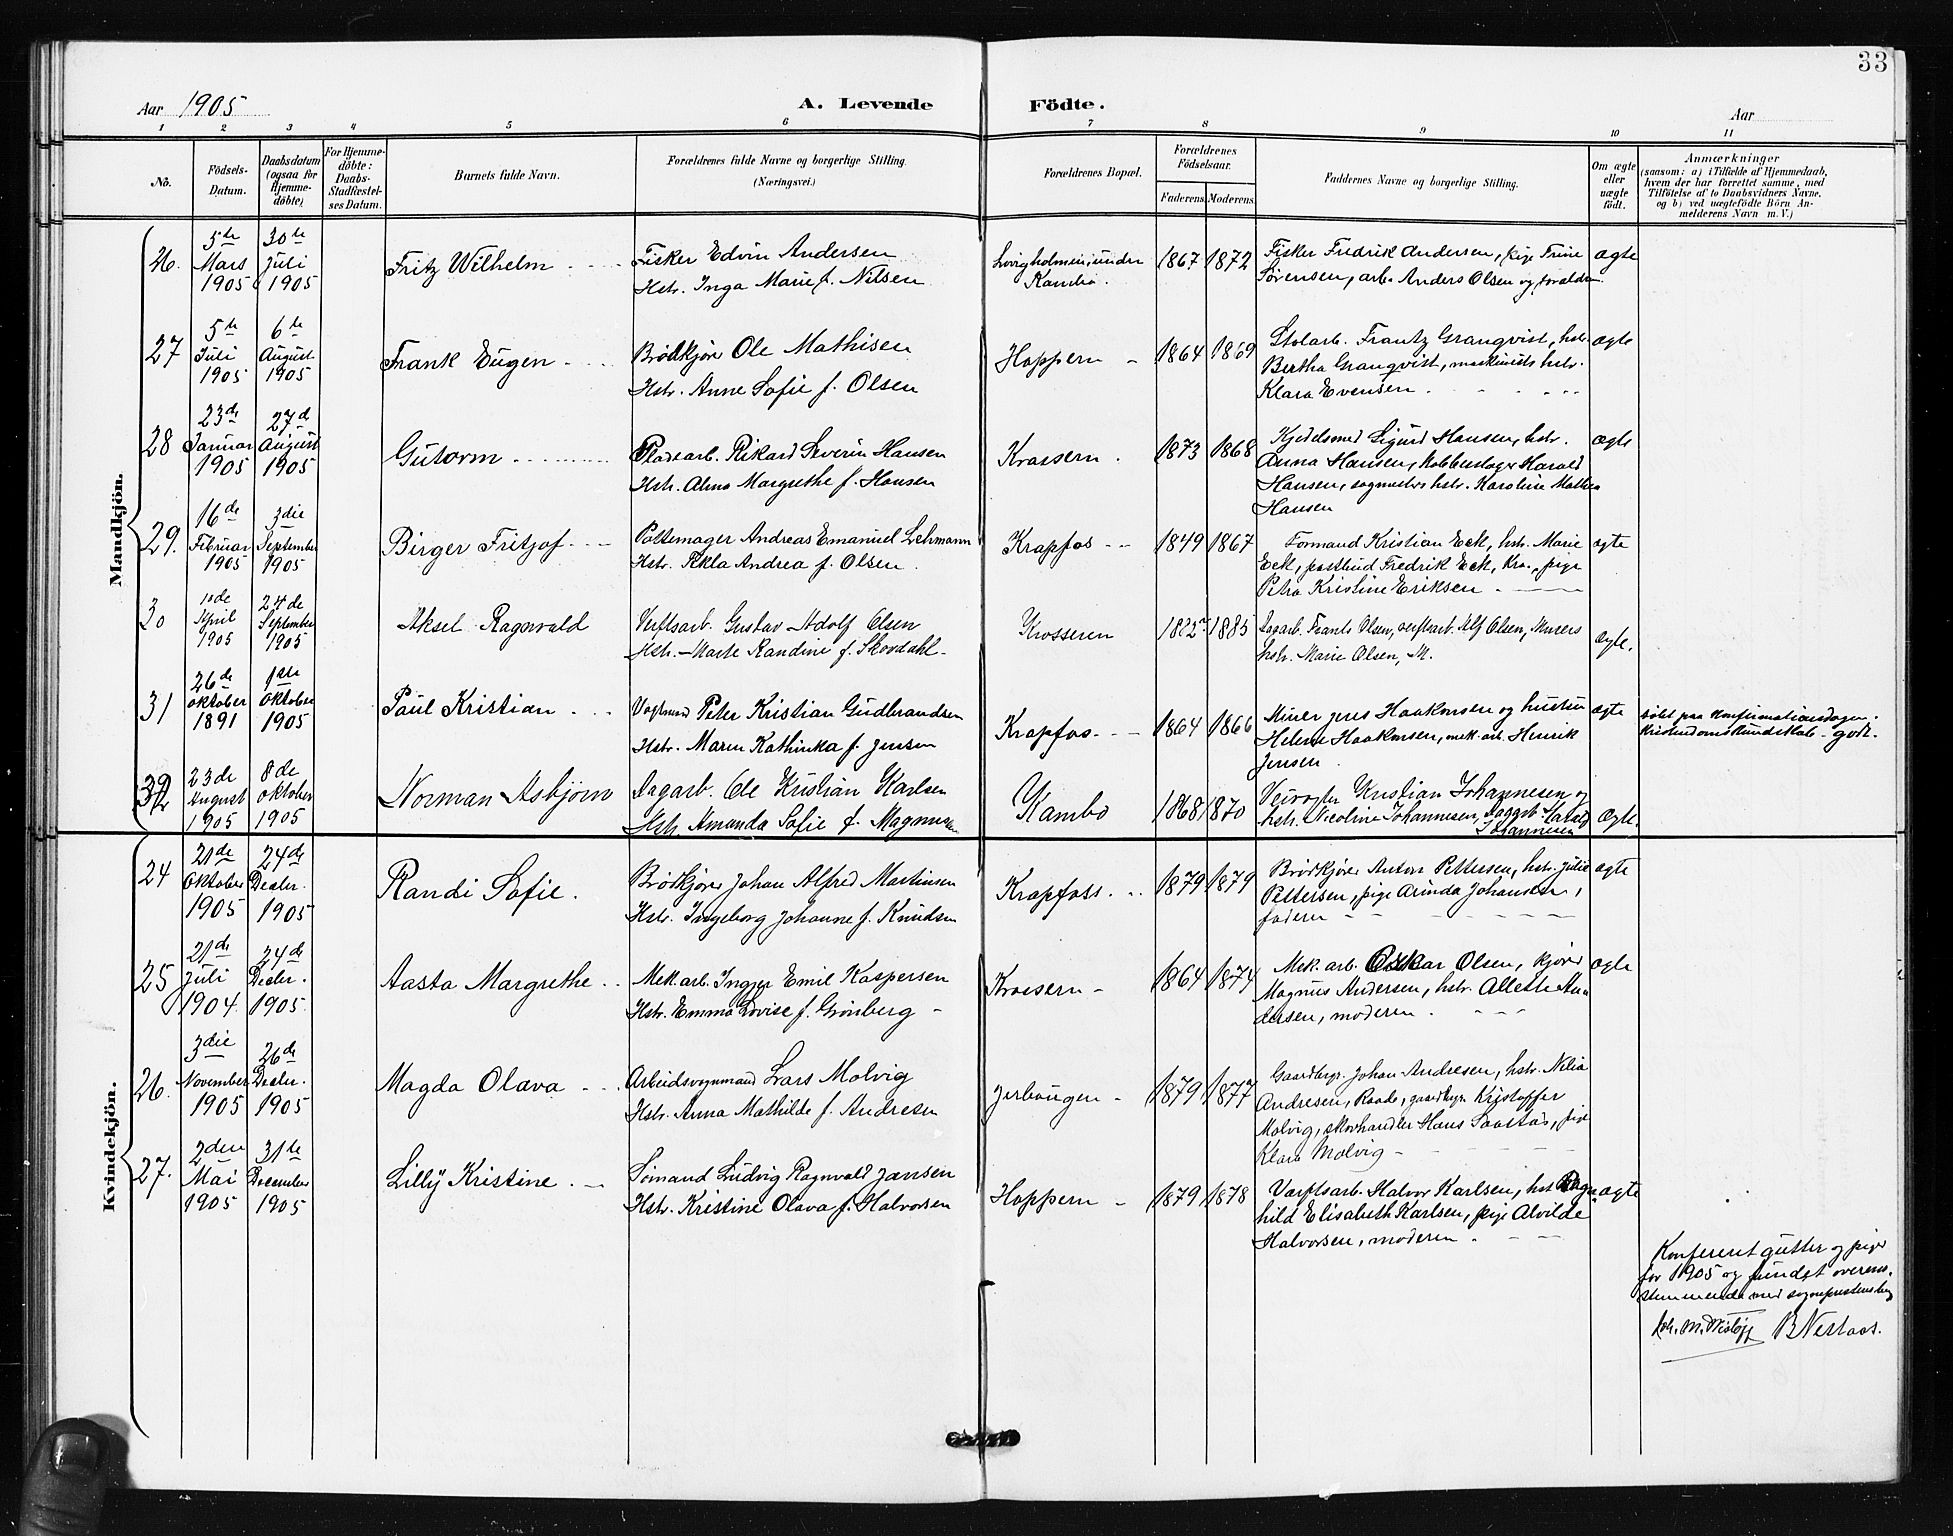 33
Aar 1905
A. Levende
Födte.
Aar
1 2 3 4 5 6 7 8 9 10 11
No.
Födsels-Datum.
Daabsdatum (ogsaa for Hjemme-döbte)
For Hjemme-döbte: Daabs-Stadfæstel-ses Datum.
Barnets fulde Navn.
Forældrenes fulde Navne og borgerlige Stilling.
(Næringsvei.)
Forældrenes Bopæl.
Forældrenes Födselsaar.
Faderens Moderens
Faddernes Navne og borgerlige Stilling.
Om ægte eller uægte födt.
Anmærkninger
(saasom: a) i Tilfælde af Hjemmedaab,
hvem der har forrettet samme, med
Tilföielse af to Daabsvidners Navne,
og b) ved uægtefödte Börn An-
melderens Navn m. V.)
Mandkjön.
26. 5te Mars 1905 30te Juli 1905 Fritz Wilhelm
Fisker Edvin Andersen
Hstr. Inga Marie f. Nilsen
under Kambo. 1867 1872
Fisker Fredrik Andersen, pige Trine
Sørensen, arb. Anders Olsen og forældre. ægte
27 5te Juli 1905 6te August 1905 Frank Eugen
Brödkjörer Ole Mathisen
Hstr. Anne Sofie f. Olsen
Hoppern 1864 1869
Stolarb. Frantz Granqvist, hstr.
Bertha Granqvist, maskinists hstr.
Klara Evensen ægte
28 23de Januar 1905 27de August 1905 Gutorm
Pladearb. Rikard Severin Hansen
Hstr. Alma Margrethe f. Hansen
Krossern. 1873 1868
Kjedelsmed Sigurd Hansen, hstr.
Anna Hansen, Kobberslager Harald
Hansen, sagmesters hstr. Karoline Mathea
Hansen ægte
29. 16de Februar 1905 3die September 1905 Birger Fritjof
Pottemager Andreas Emanuel Lehmann
Hstr. Tekla Andrea f. Olsen
Krapfos 1849 1867
Formand Kristian Eck, hstr. Marie
Eck, postbud Fredrik Eck, Kra., pige
Petra Kristine Eriksen ægte
30 April 1905 24de September 1905 Aksel Ragnvald
Verftsarb. Gustav Adolf Olsen
Hstr. Marte Randine f. Skovdahl
Krosseren 1882 1885
Dagarb. Frants Olsen, verftsarb. Alf Olsen, Murers
hstr. Marie Olsen, M. ægte.
31 26de Oktober 1891 1ste Oktober 1905 Paul Kristian
Vogtmand Peter Kristian Gudbrandsen
Hstr. Maren Kathinka f. Jensen
Krapfos 1864 1866
Murer Jens Haakonsen og hustru
Helene Haakonsen, mek. arb. Henrik
Jensen ægte
Döbt paa Konfirmationsdagen.
Kristendomskundskab - godt.
32 23de August 1905 8de Oktober 1905 Norman Asbjörn
Dagarb. Ole Kristian Karlsen
Hstr. Amanda Sofie f. Magnussen
Kambo 1868 1870
Veivogter Kristian Johannesen og
hstr. Nicoline Johannesen, Dagarb. Harald
Johannesen ægte.
Kvindekjön.
24 21de Oktober 1905 24de Decbr. 1905 Randi Sofie.
Brödkjörer Johan Alfred Martinsen
Hstr. Ingeborg Johanne f. Knudsen
Krapfoss 1879 1879
Brödkjörer Anton Pettersen, hstr. Julie
Pettersen, pige Arinda Johansen,
faderen ægte
25 21de Juli 1904. 24de Decbr. 1905. Aasta Margrethe
Mek. arb. Ingjer Emil Kaspersen
Hstr. Emma Lovise f. Grönberg
Krossern 1864 1874
Mek. arb. Oskar Olsen, kjörer
Magnus Andersen, hstr. Allette An-
dersen, moderen. ægte
26. 3die November 1905 26de Decbr. 1905 Magda Olava
Arbeidsvognmand Lars Molvig
Hstr. Anna Mathilde f. Andresen
Jerbougen 1879 1877
Gaardbrgr. Johan Andresen, hstr. Nilia
Andresen, Raade, gaardbgr. Kristoffer
Molvig, skovhandler Hans Saastad, pige
Klara Molvig
27. 2den Mai 1905 31te December 1905 Lilly Kristine
Sömand Ludvig Ragnvald Jansen
Hstr. Kristine Olava f. Halvorsen
Hoppern 1879 1878
Værftsarb. Halvor Karlsen, hstr. Ragn-
hild Elisabeth Karlsen, pige Alvilde
Halvorsen, moderen. ægte
Konferent gutter og piger
for 1905 og fundet overens-
stemmende med sogneprestens bog
B Nestaas.